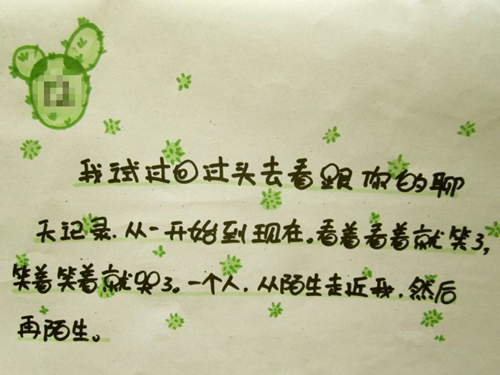 我试过回过头去看跟你的聊
天记录.从一开始到现在。看着看着就笑了,
笑着笑着就哭了。一个人.从陌生走近我.然后
再陌生。